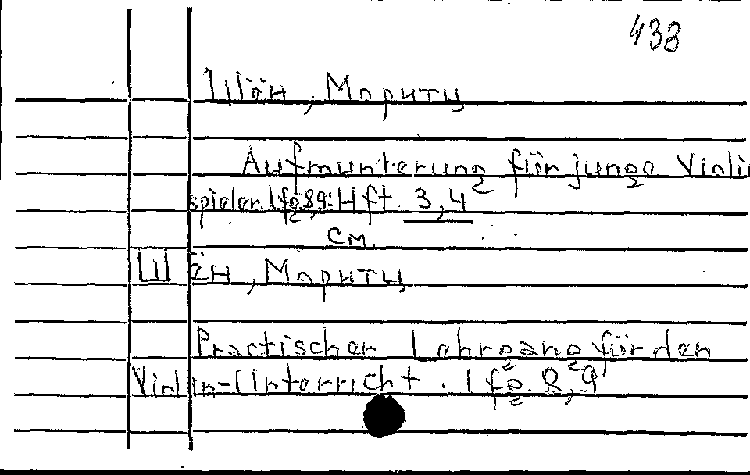 433
Шён, Моритц
Aufmunterung für junge Violin
spieler. lfg 8,9. Hft. 3,4
см.
Шён, Моритц
Practischer Lehrgang für den
Violin-Unterricht. lfg. 8,9